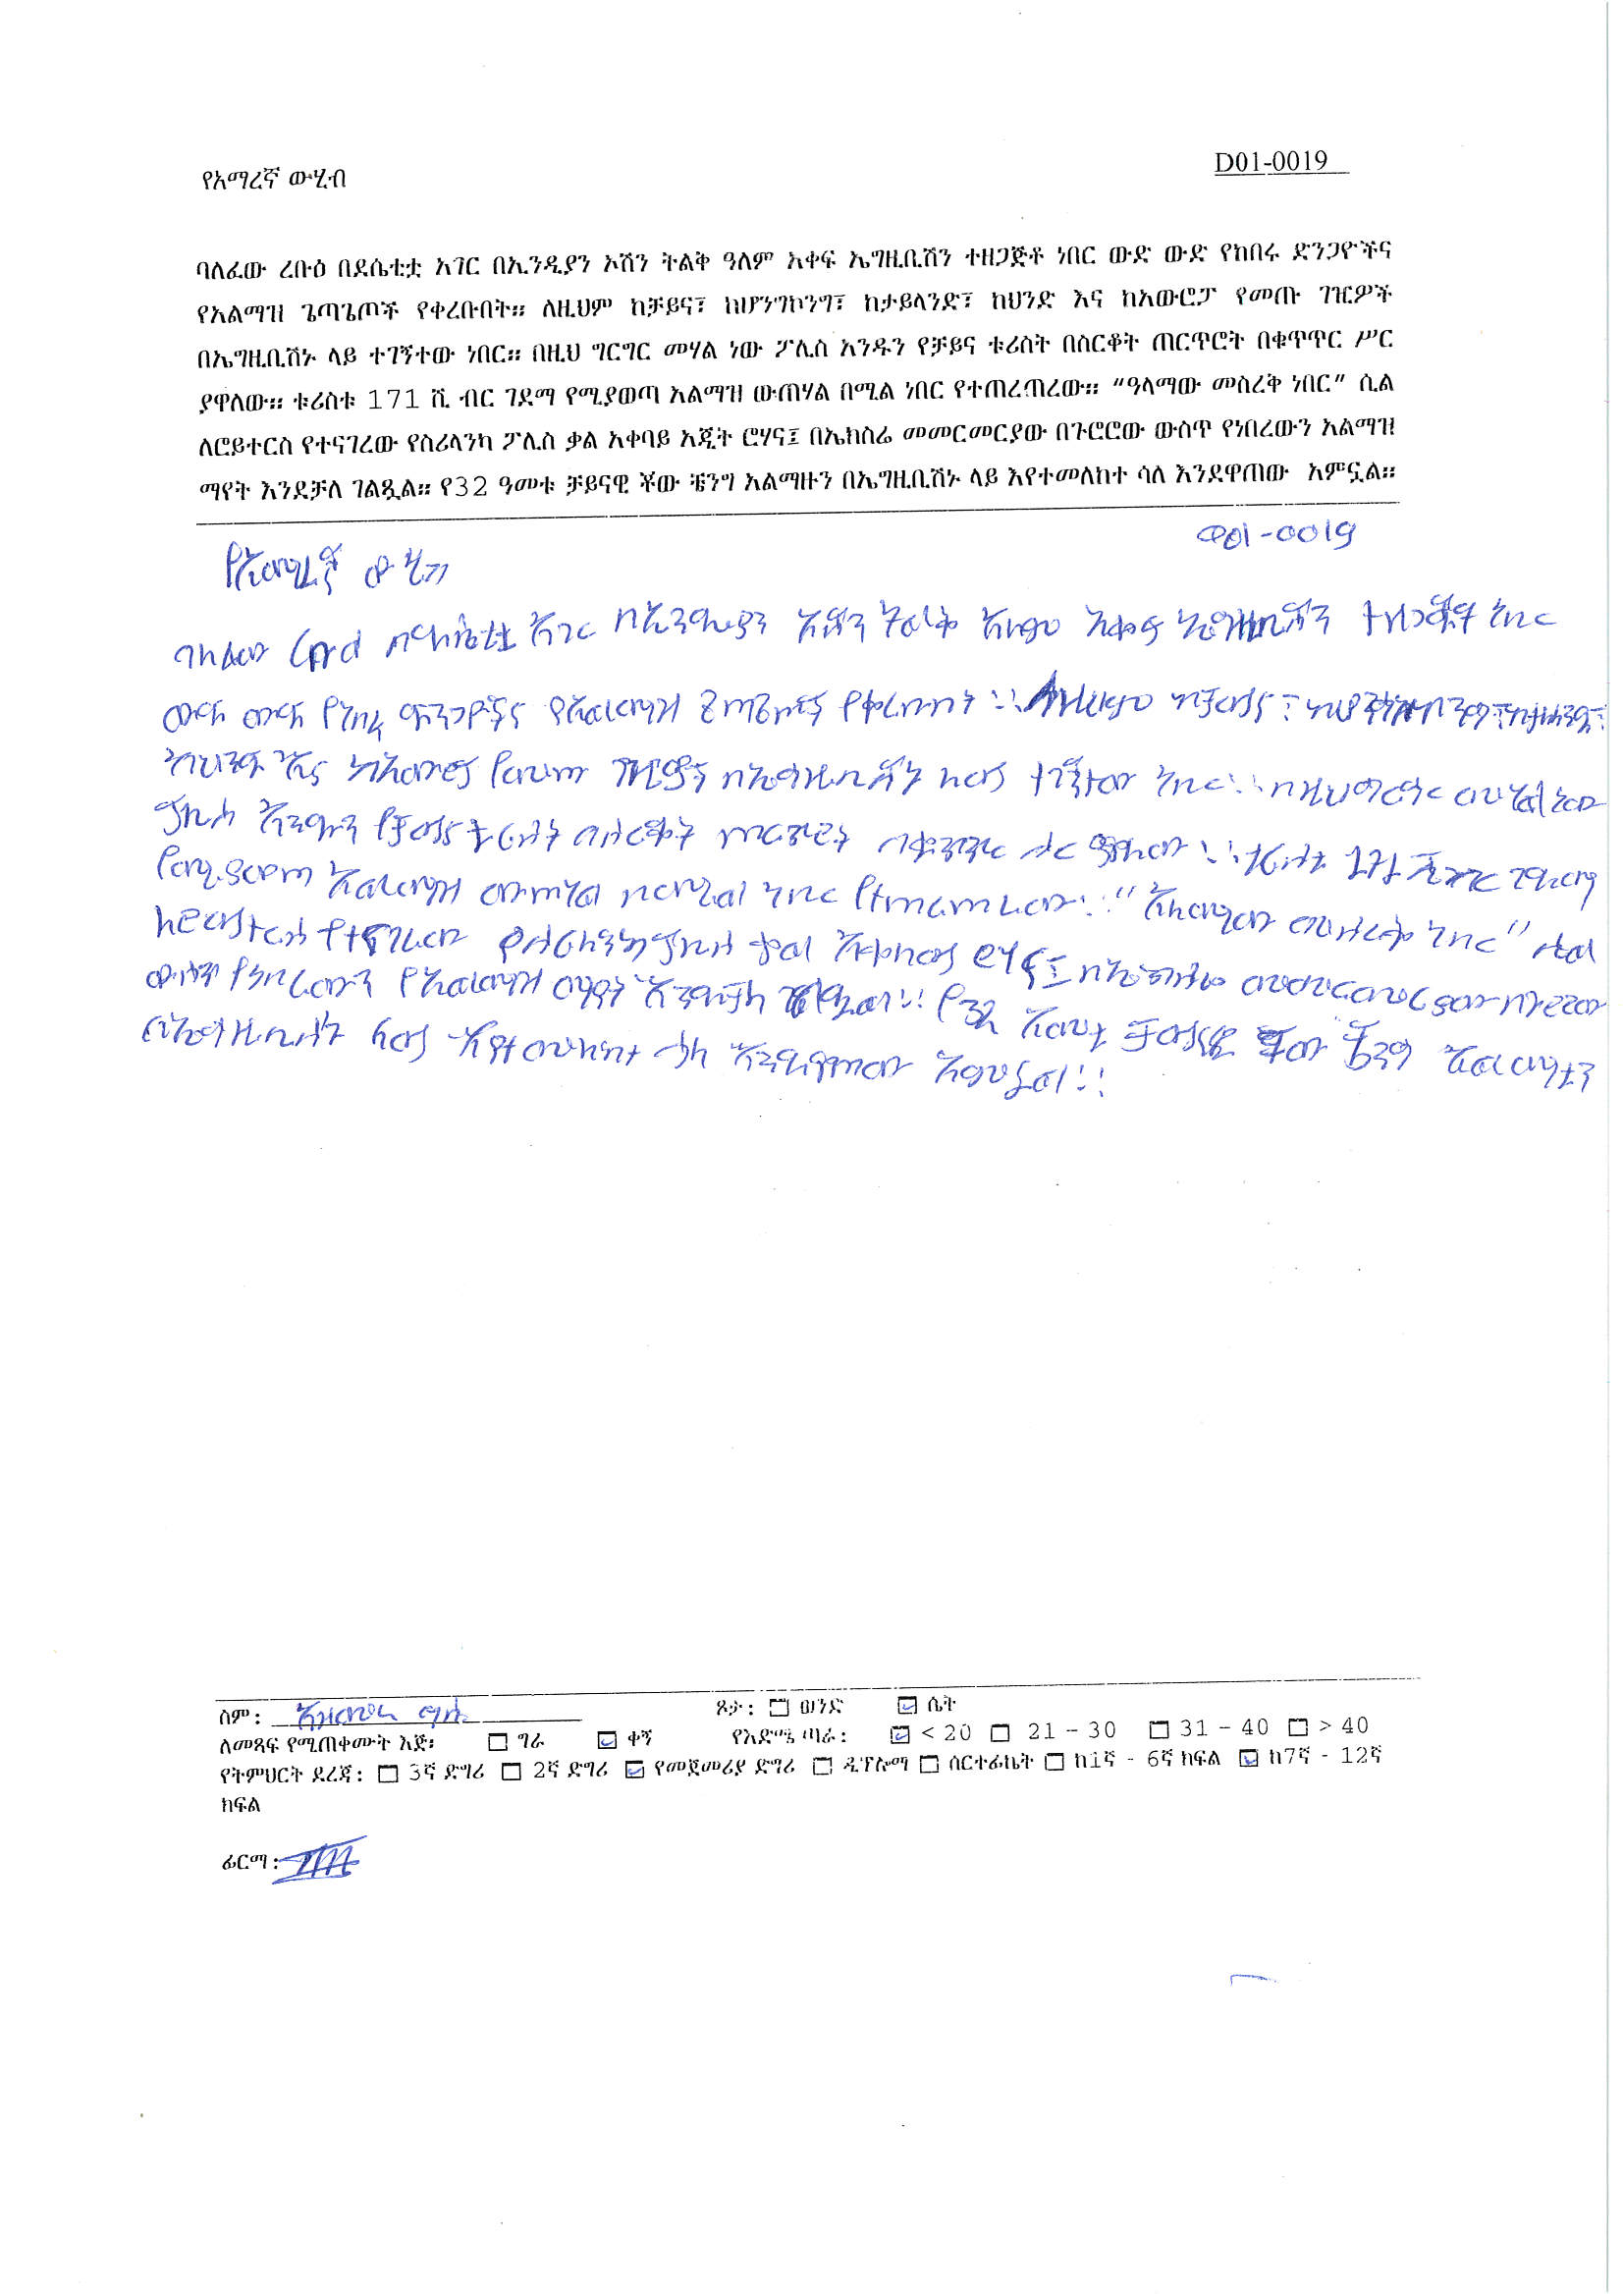 የአማረኛ ውሂብ
D01-0019
ባለፈው ረቡዕ በደሴቲቷ አገር በኢንዲያን ኦሽን ትልቅ ዓለም አቀፍ ኤግዚቢሽን ተዘጋጅቶ ነበር ውድ ውድ የከበሩ ድንጋዮችና
የአልማዝ ጌጣጌጦች የቀረቡበት። ለዚህም ከቻይና፣ ከሆንግኮንግ፣ ከታይላንድ፣ ከህንድ እና ከአውሮፓ የመጡ ገዢዎች
በኤግዚቢሽኑ ላይ ተገኝተው ነበር። በዚህ ግርግር መሃል ነው ፖሊስ አንዱን የቻይና ቱሪስት በስርቆት ጠርጥሮት በቁጥጥር ሥር
ያዋለው። ቱሪስቱ 171 ሺ ብር ገደማ የሚያወጣ አልማዝ ውጠሃል በሚል ነበር የተጠረጠረው። “ዓላማው መስረቅ ነበር” ሲል
ለሮይተርስ የተናገረው የስሪላንካ ፖሊስ ቃል አቀባይ አጂት ሮሃና፤ በኤክስሬ መመርመርያው በጉሮሮው ውስጥ የነበረውን አልማዝ
ማየት እንደቻለ ገልጿል። የ32 ዓመቱ ቻይናዊ ቾው ቼንግ አልማዙን በኤግዚቢሽኑ ላይ እየተመለከተ ሳለ እንደዋጠው አምኗል።
D01-0019
የአማረኛ ውሂብ
ባለፈው ረቡዕ በደሴቲቷ አገር በኢንዲያን ኦሽን ትልቅ አለም አቀፍ ኤግዚቢሽን ተዘጋጅቶ ነበር
ውድ ውድ የከበሩ ድንጋዮችና የአልማዝ ጌጣጌጦች የቀረቡበት። ለዚህም ከቻይና፣
ከህንድ እና ከአውሮፓ የመጡ ገዢዎች በኤግዚቢሽኑ ላይ ተገኝተው ነበር። በዚህ ግርግር መሃል ነው
ፖሊስ አንዱን የቻይና ቱሪስት በስርቆት ጠርጥሮት በቁጥጥር ስር ያዋለው። ቱሪስቱ 171 ሺ ብር ገደማ
የሚያወጣ አልማዝ ውጠሃል በሚል ነበር የተጠረጠረው። “አላማው መስረቅ ነበር” ሲል
ለሮይተርስ የተናገረው የስሪላንካ ፖሊስ ቃል አቀባይ ሮሃና፤ በኤክስሬ መመርመርያው በጉሮሮው
ውስጥ የነበረውን የአልማዝ ማየት እንደቻለ ገልጿል። የ32 አመቱ ቻይናዊ ቾው ቼንግ አልማዙን
በኤግዚቢሽኑ ላይ እየተመለከተ ሳለ እንደዋጠው አምኗል።
ስም: ጾታ: ☐ ወንድ ☑ ሴት
ለመጻፍ የሚጠቀሙት እጅ: ☐ ግራ ☑ ቀኝ የእድሜ ጣራ: ☑ < 20 ☐ 21 - 30 ☐ 31 - 40 ☐ > 40
የትምህርት ደረጃ: ☐ 3ኛ ድግሪ ☐ 2ኛ ድግሪ ☑ የመጀመሪያ ድግሪ ☐ ዲፕሎማ ☐ ሰርተፊኬት ☐ ከ1ኛ - 6ኛ ክፍል ☑ ከ7ኛ - 12ኛ
ክፍል
ፊርማ: